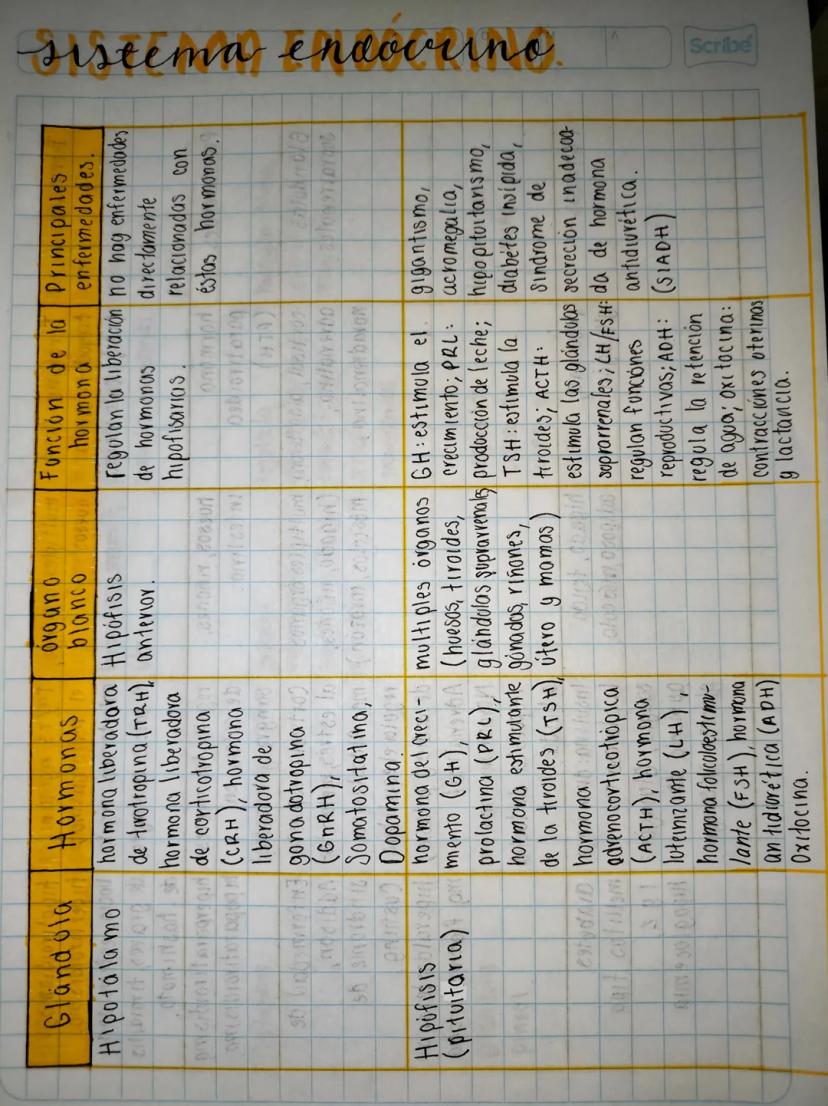 sistema endócrino
SISTEMA ENDÓCRINO.
Scribe
Glándula
Hormonas
órgano
blanco
Función de la
hormona
Principales
enfermedades.
Hipotálamo
hormona liberadora
de tirotropina (TRH),
hormona liberadora
de corticotropina
(CRH), hormona
liberadora de
gonadotropina
(GnRH),
Somatositatina,
Dopamina.
Hipófisis
anterior.
regulan la liberación
de hormonas
hipofisarios.
no hay enfermedades
directamente
relacionadas con
éstas hormonas.
Hipófisis
(pituitaria)
hormona del creci-
mento (GH),
prolactina (PRL),
hormona estimulante
de la tiroides (TSH),
hormona
adrenocorticotrópica
(ACTH), hormona
luteinizante (LH),
hormona foliculoestimu-
lante (FSH), hormona
antidiurética (ADH)
Oxitocina.
multiples órganos
(huesos, tiroides,
glándulas suprarrenales
gónadas, riñones,
útero y mamas)
GH: estimula el
crecimiento; PRL:
producción de leche;
TSH: estimula la
tiroides; ACTH:
estimula las glándulas
soprarrenales; LH/FSH:
regulan funciones
reproductivas; ADH:
regula la retención
de agua; oxitocina:
contracciónes uterinas
y lactancia.
gigantismo,
acromegalia,
hipopituitarismo,
diabétes insípida,
síndrome de
secreción inadecua-
da de hormona
antidiurética.
(SIADH)